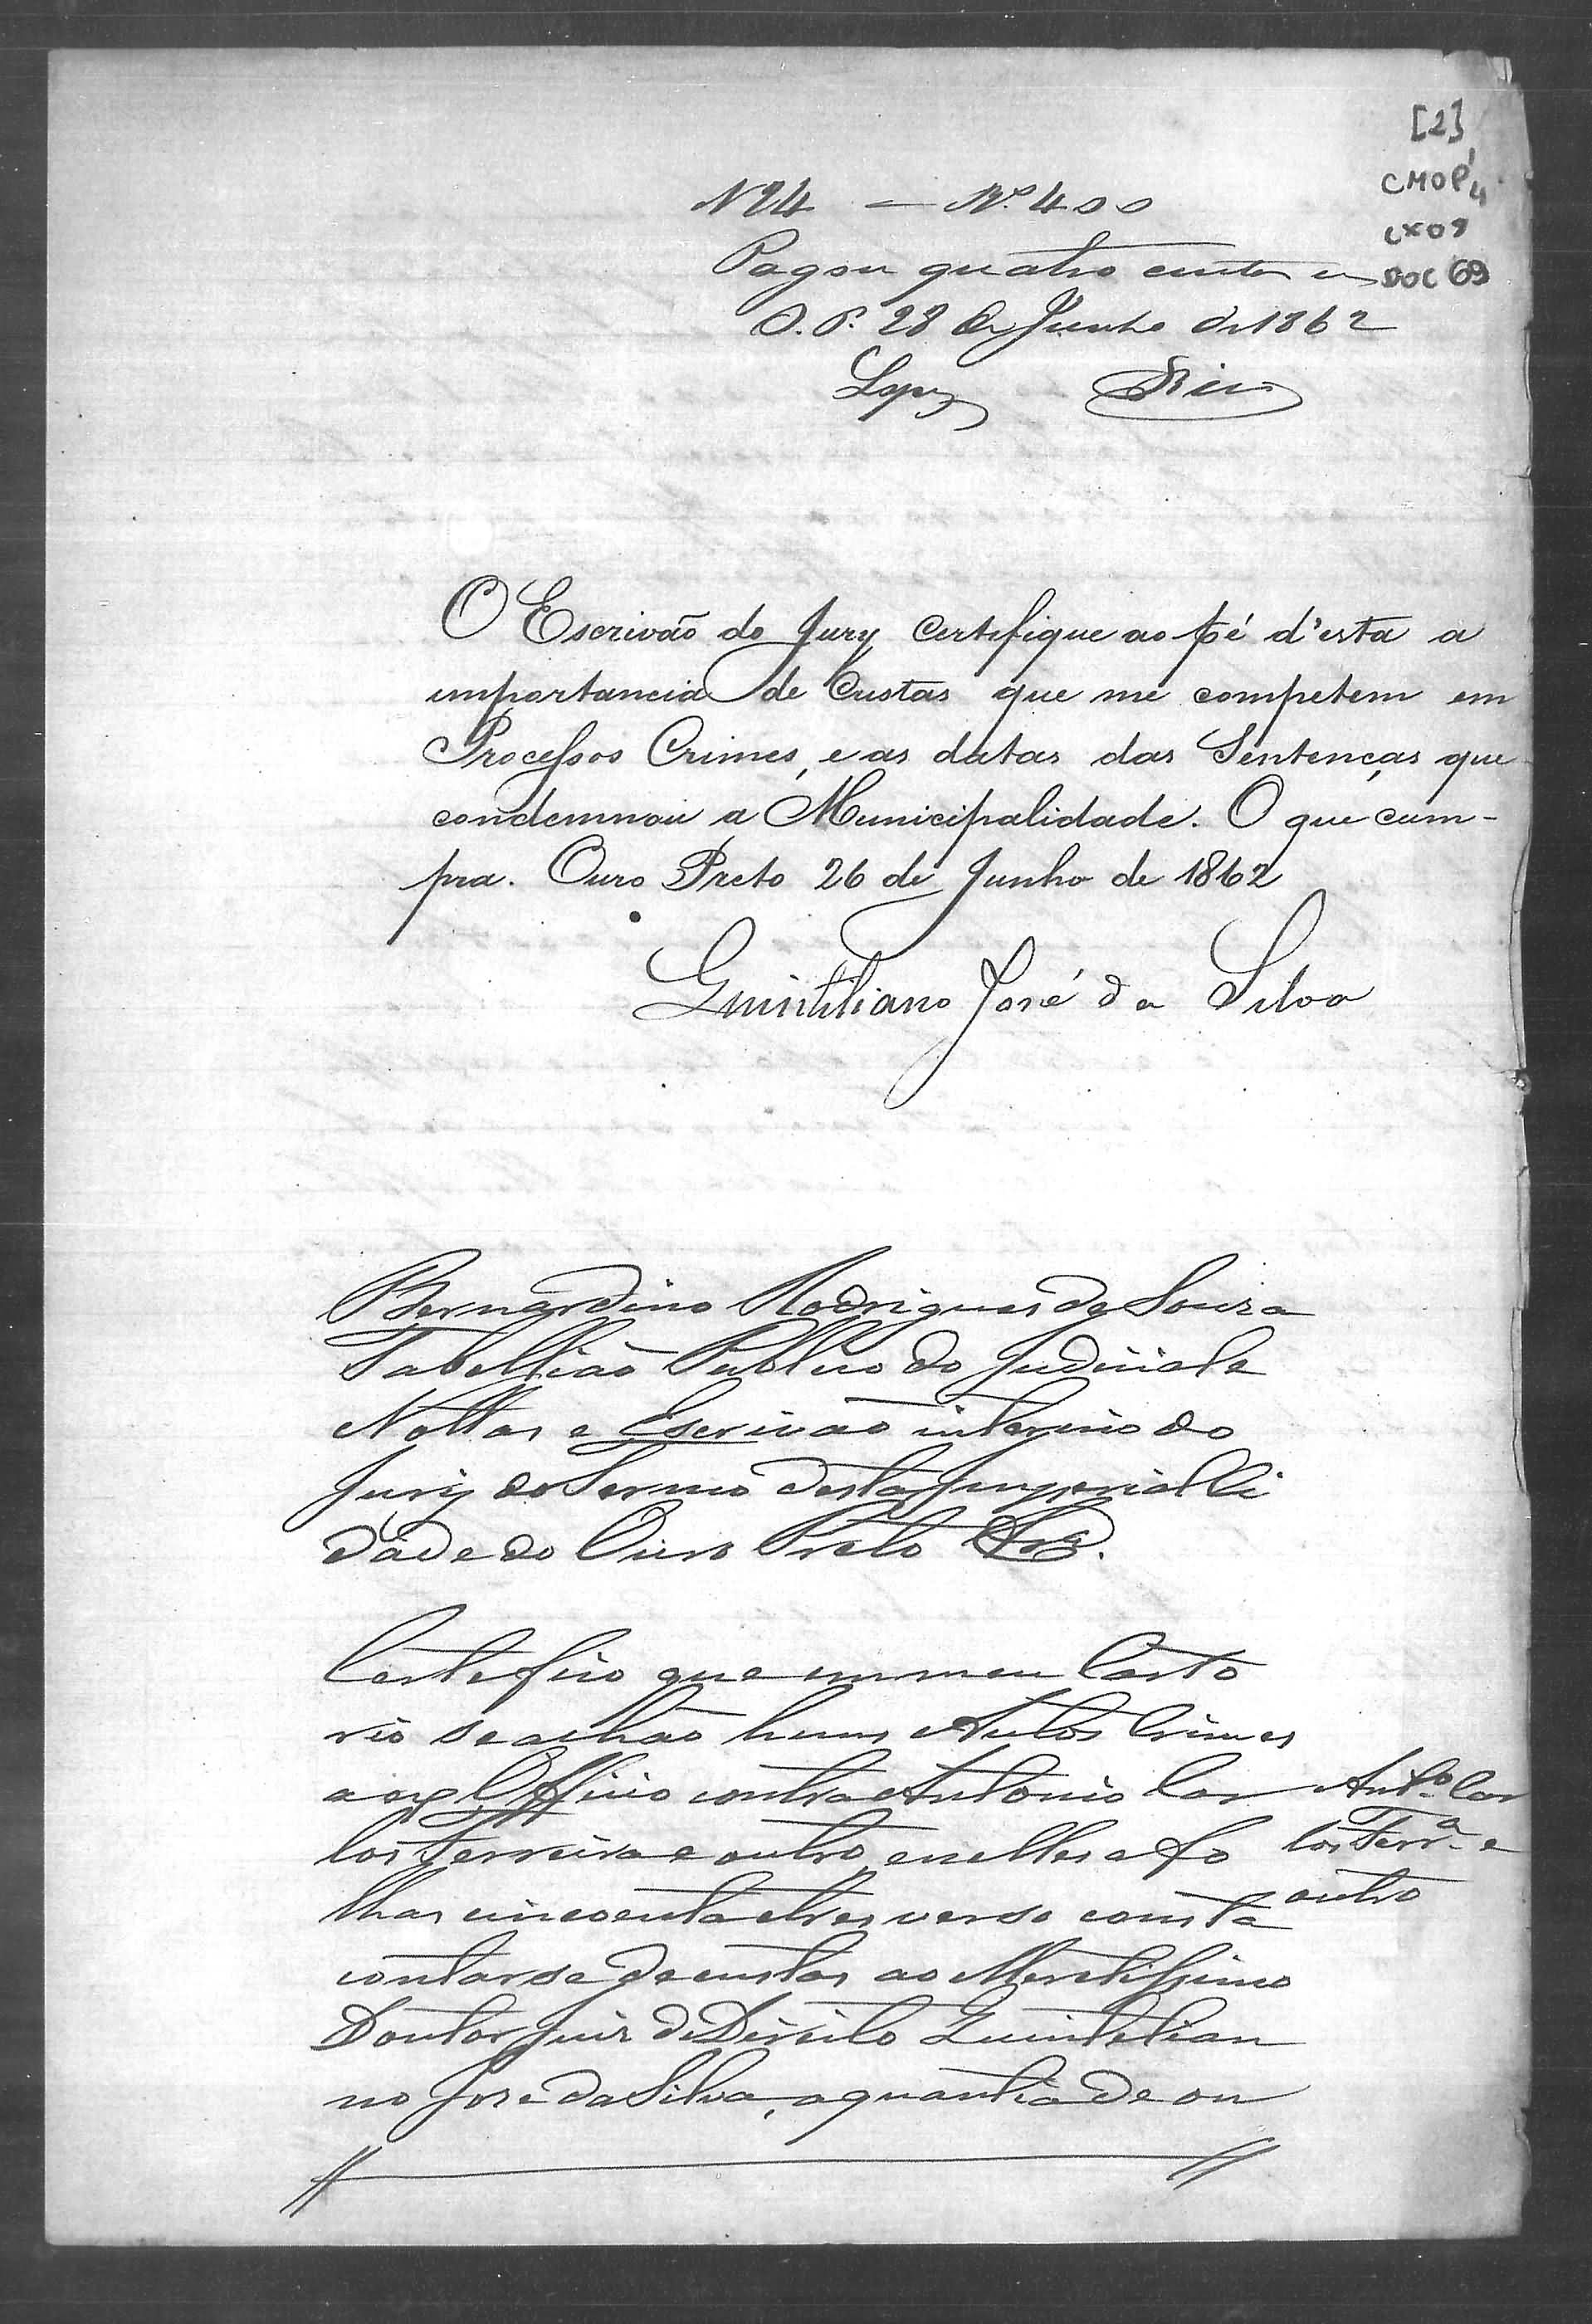 [2]
CMOP
CX09
DOC 69
N 24 — Rs. 400
Pagou quatro centos rs
O. P. 28 de Junho de 1862
Lopes
O Escrivão do Jury Certifique ao pé d'esta a
importancia de Custas que me competem em
Processos Crimes, e as datas das Sentenças que
condemnou a Municipalidade. O que cum-
pra. Ouro Preto 26 de Junho de 1862
Quintiliano José da Silva
Bernardino Rodrigues de Souza
Tabellião Publico do Judicial e
Nottas e Escrivão interino do
Jury do Termo desta Imperial Ci
dade do Ouro Preto &a.
Certefico que em meu Carto
rio se achão huns Autos Crimes
a ex Officio contra Antonio Car
los Ferreira e outro, e nelles a fo
lhas cincoenta e tres verso consta
contar-se de custas ao Meretissimo
Doutor Juiz de Direito Quintelian
no Jose da Silva, a quantia de on
Anto. Car
los Ferra. e
outro